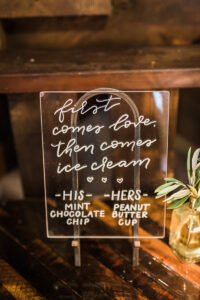 first
comes love,
then comes
ice cream
-HIS- -HERS-
MINT PEANUT
CHOCOLATE BUTTER
CHIP CUP